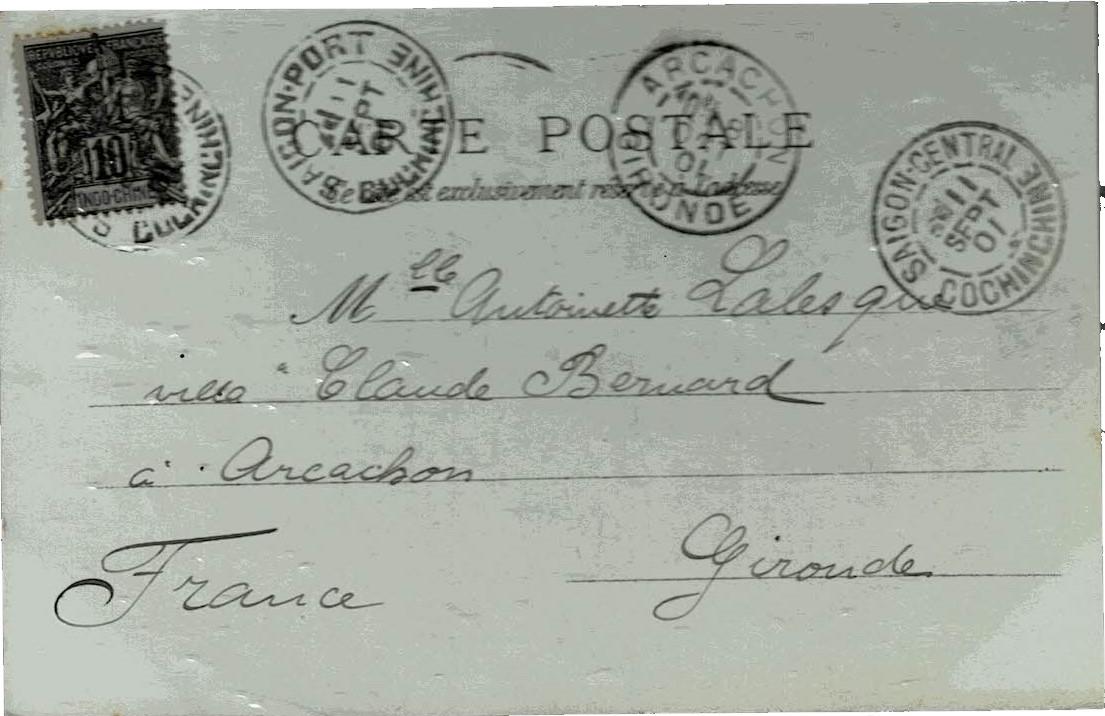 REPUBLIQUE FRANCAISE
10
INDO-CHINE
COCHINCHINE
SAIGON-PORT
11
SEPT
COCHINCHINE
ARCACHON
01
GIRONDE
SAIGON-CENTRAL
11
SEPT
01
COCHINCHINE
CARTE POSTALE
Ce côté est exclusivement réservé à l'adresse
Mlle Antoinette Lalesque
villa "Claude Bernard
à Arcachon
Gironde
France